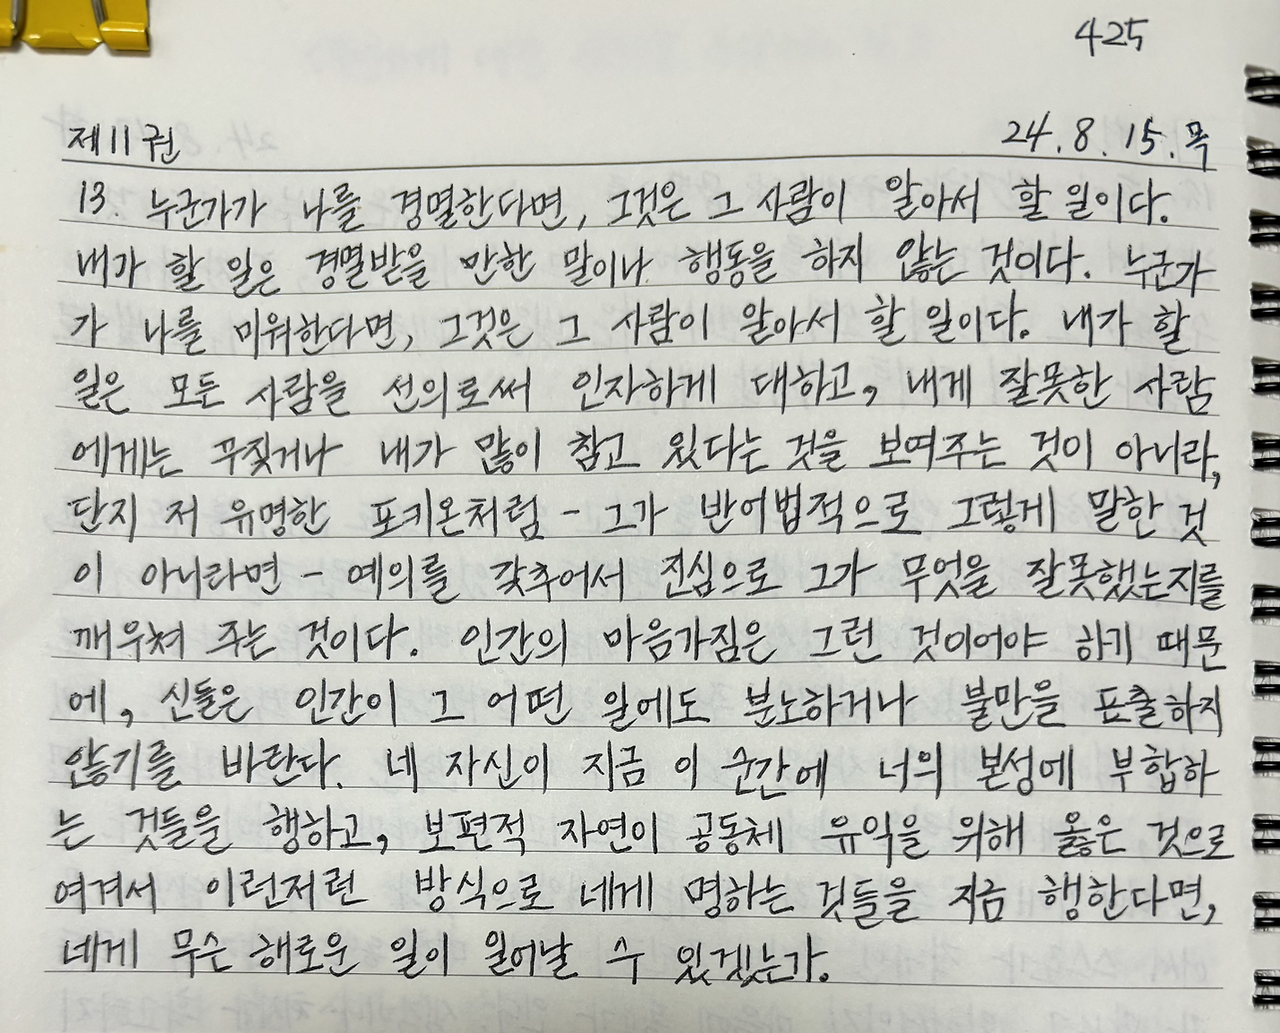 425
제11권 24.8.15.목
13. 누군가가 나를 경멸한다면, 그것은 그 사람이 알아서 할 일이다.
내가 할 일은 경멸받을 만한 말이나 행동을 하지 않는 것이다. 누군가
가 나를 미워한다면, 그것은 그 사람이 알아서 할 일이다. 내가 할
일은 모든 사람을 선의로써 인자하게 대하고, 내게 잘못한 사람
에게는 꾸짖거나 내가 많이 참고 있다는 것을 보여주는 것이 아니라,
단지 저 유명한 포키온처럼 - 그가 반어법적으로 그렇게 말한 것
이 아니라면 - 예의를 갖추어서 진심으로 그가 무엇을 잘못했는지를
깨우쳐 주는 것이다. 인간의 마음가짐은 그런 것이어야 하기 때문
에, 신들은 인간이 그 어떤 일에도 분노하거나 불만을 표출하지
않기를 바란다. 네 자신이 지금 이 순간에 너의 본성에 부합하
는 것들을 행하고, 보편적 자연이 공동체 유익을 위해 옳은 것으로
여겨서 이런저런 방식으로 네게 명하는 것들을 지금 행한다면,
네게 무슨 해로운 일이 일어날 수 있겠는가.